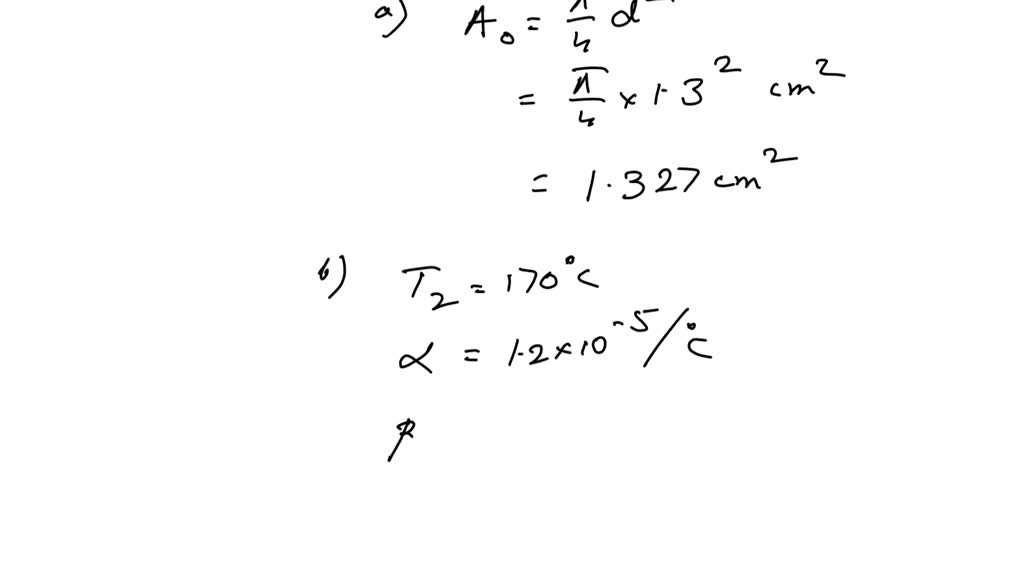 a) A₀ = π/4 d²
= π/4 × 1.3² cm²
= 1.327 cm²
b) T₂ = 170°C
α = 1.2×10⁻⁵/°C
β